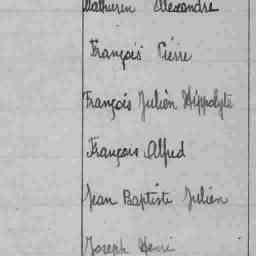 Mathurin Alexandre
François Pierre
François Julien Hippolyte
François Alfred
Jean Baptiste Julien
Joseph Henri